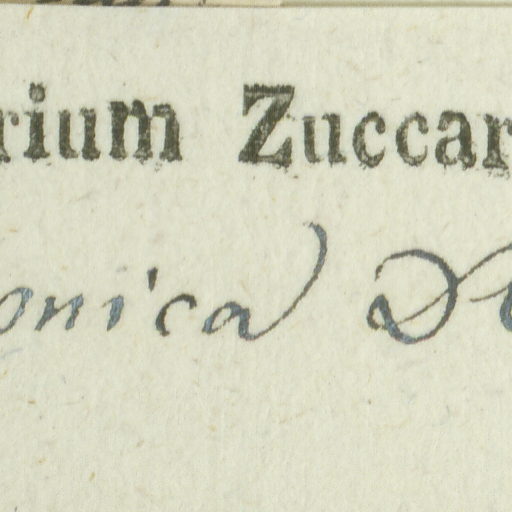 rium Zuccar
onica